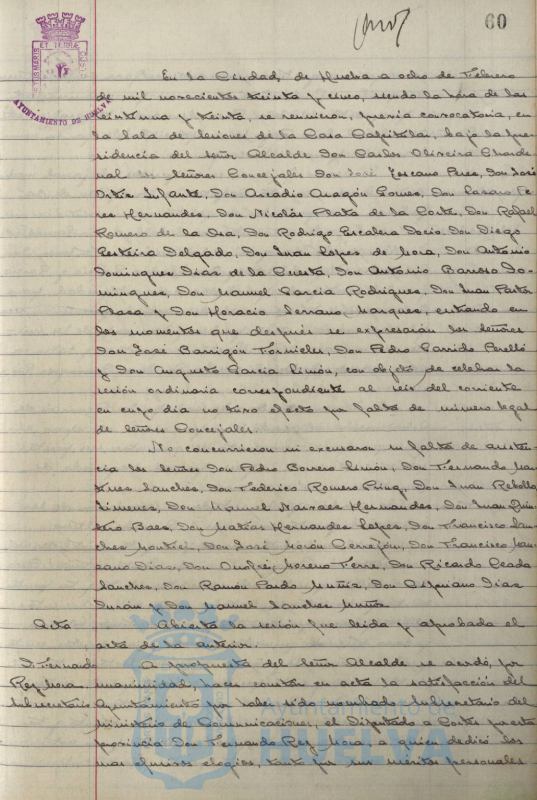 60
PORTUS MARIS ET TERRAE CUSTODIA
AYUNTAMIENTO DE HUELVA
En la Ciudad, de Huelva a ocho de Febrero
de mil novecientos treinta y cinco, siendo la hora de las
veintiuna y treinta, se reunieron, previa convocatoria, en
la Sala de sesiones de la Casa Capitular, bajo la pre-
sidencia del Señor Alcalde Don Carlos Oliveira Charde-
nal los Señores Concejales Don José Toscano Peres, Don José
Ortiz Infante, Don Arcadio Aragón Gomes, Don Lazaro Pe-
res Hernandes, Don Nicolás Plata de la Corte, Don Rafael
Romero de la Osa, Don Rodrigo Escalera Docio, Don Diego
Don Juan Lopes de Mora, Don Antonio
Domingues Dias de la Cuesta, Don Antonio Barroso Do-
mingues, Don Manuel Garcia Rodrigues, Don Juan Pastor
Plasa y Don Horacio Serrano Marques, entrando en
los momentos que después se expresarán los señores
Don José Barrigón Fornieles, Don Pedro Garrido Perelló
y Don Augusto Garcia Limón, con objeto de celebrar la
sesión ordinaria correspondiente al seis del corriente
en cuyo dia no tuvo efecto por falta de número legal
de Señores Concejales.
No concurrieron ni excusaron su falta de asisten-
cia los señores Don Pedro Borrero Limón, Don Fernando Mar-
tines Sanches, Don Federico Romero Don Juan Rebollo
Jimenes, Don Manuel Narvaes Hernandes, Don Juan Quin-
tero Baes, Don Matías Hernandes Lopes, Don Francisco San-
ches Don José Morón Don Francisco Man-
zano Dias, Don Onofre Moreno Don Ricardo
Sanches, Don Ramón Pardo Muñiz, Don Cipriano Dias
Durán y Don Manuel Sanches Muñoz
Acta Abierta la sesión fue leida y aprobada el
acta de la anterior.
D. Fernando A propuesta del Señor Alcalde se acordó, por
Rey Mora unanimidad, hacer constar en acta la satisfacción del
Subsecretario Ayuntamiento por haber sido nombrado Subsecretario del
Ministerio de Comunicaciones, el Diputado a Cortes por esta
provincia Don Fernando Rey Mora, a quien dedicó los
mas efusivos elogios, tanto por sus méritos personales
Ayuntamiento de
HUELVA